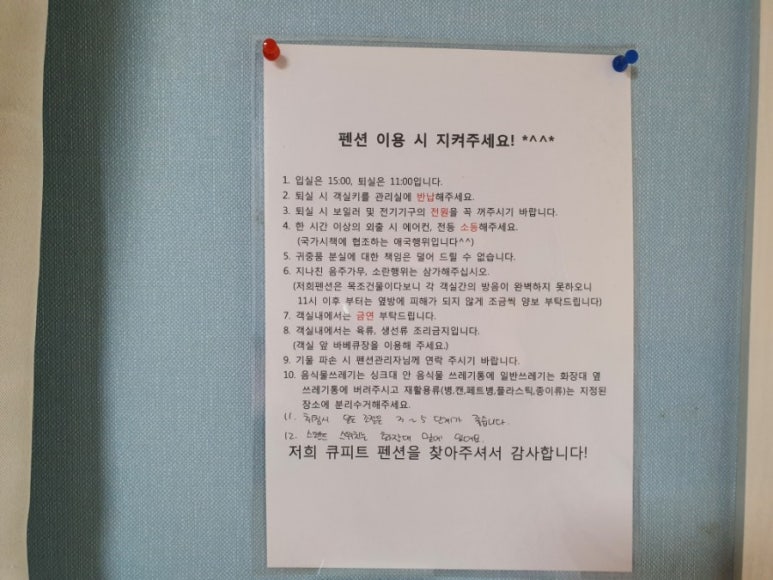 펜션 이용 시 지켜주세요! *^^*
1. 입실은 15:00, 퇴실은 11:00입니다.
2. 퇴실 시 객실키를 관리실에 반납해주세요.
3. 퇴실 시 보일러 및 전기기구의 전원을 꼭 꺼주시기 바랍니다.
4. 한 시간 이상의 외출 시 에어컨, 전등 소등해주세요.
(국가시책에 협조하는 애국행위입니다^^)
5. 귀중품 분실에 대한 책임은 덜어 드릴 수 없습니다.
6. 지나친 음주가무, 소란행위는 삼가해주십시오.
(저희펜션은 목조건물이다보니 각 객실간의 방음이 완벽하지 못하오니
11시 이후 부터는 옆방에 피해가 되지 않게 조금씩 양보 부탁드립니다)
7. 객실내에서는 금연 부탁드립니다.
8. 객실내에서는 육류, 생선류 조리금지입니다.
(객실 앞 바베큐장을 이용해 주세요.)
9. 기물 파손 시 펜션관리자님께 연락 주시기 바랍니다.
10. 음식물쓰레기는 싱크대 안 음식물 쓰레기통에 일반쓰레기는 화장대 옆
쓰레기통에 버려주시고 재활용류(병,캔,페트병,플라스틱,종이류)는 지정된
장소에 분리수거해주세요.
11. 취침시 온도 조절은 3~5 단계가 좋습니다.
12. 스탠드 스위치는 화장대 밑에 있어요.
저희 큐피트 펜션을 찾아주셔서 감사합니다!